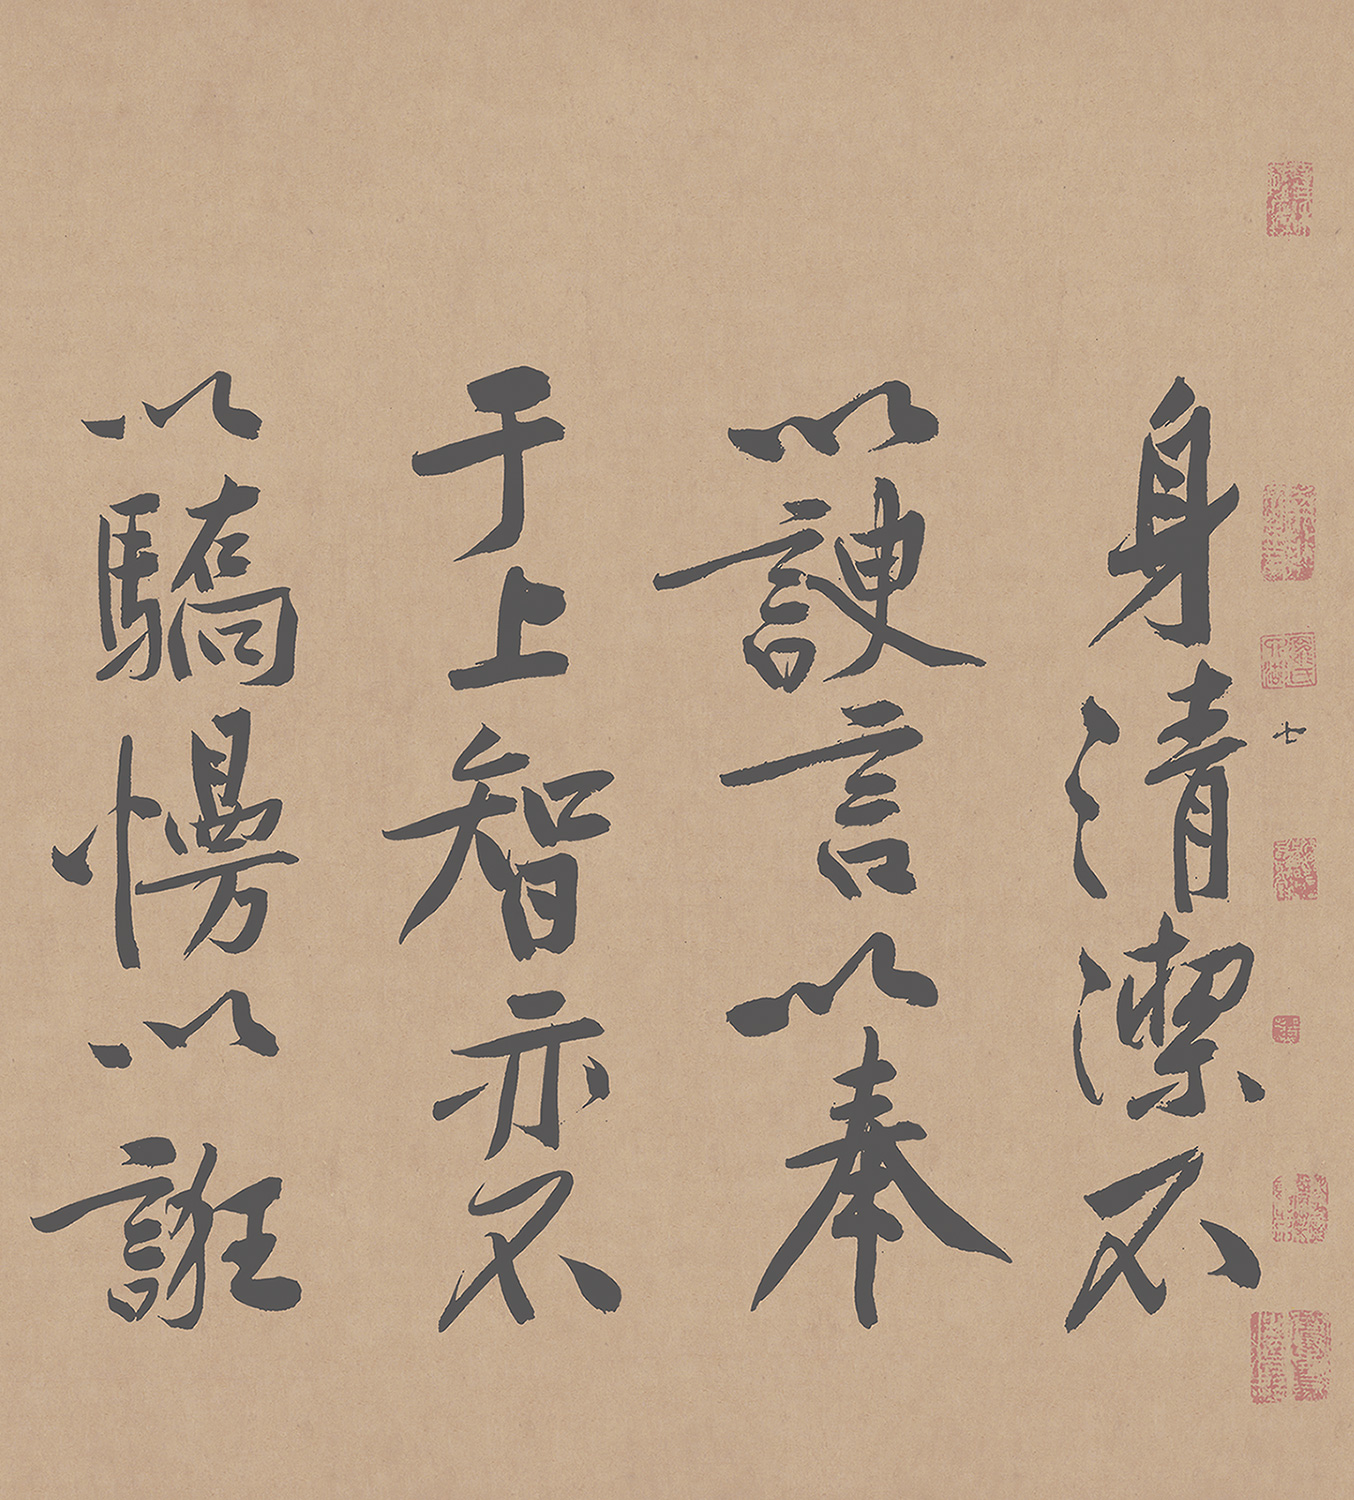 身清潔不
以諛言以奉
于上智亦不
以驕慢以誑
七